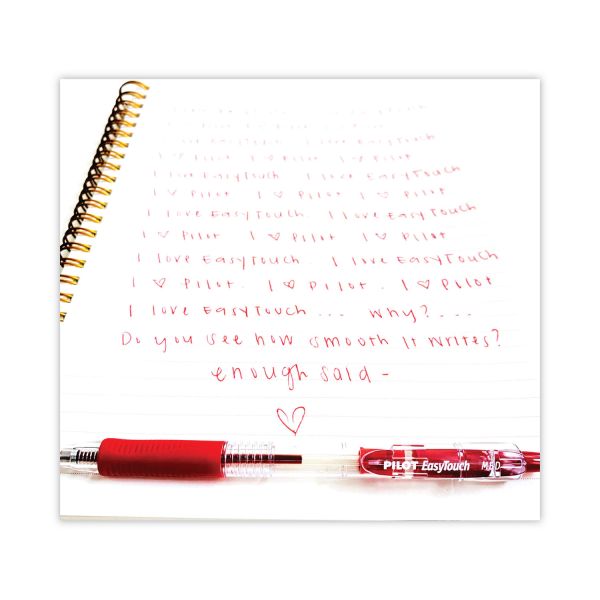 I love EasyTouch
I ♡ Pilot I ♡ Pilot I ♡ Pilot
I love EasyTouch I love EasyTouch
I ♡ Pilot. I ♡ Pilot I ♡ Pilot
I love EasyTouch. I love EasyTouch
I ♡ Pilot I ♡ Pilot I ♡ Pilot
I love EasyTouch. I love EasyTouch
I ♡ Pilot. I ♡ Pilot. I ♡ Pilot
I love EasyTouch... Why?...
Do you see how smooth it writes?
enough said -
♡
PILOT EasyTouch MED